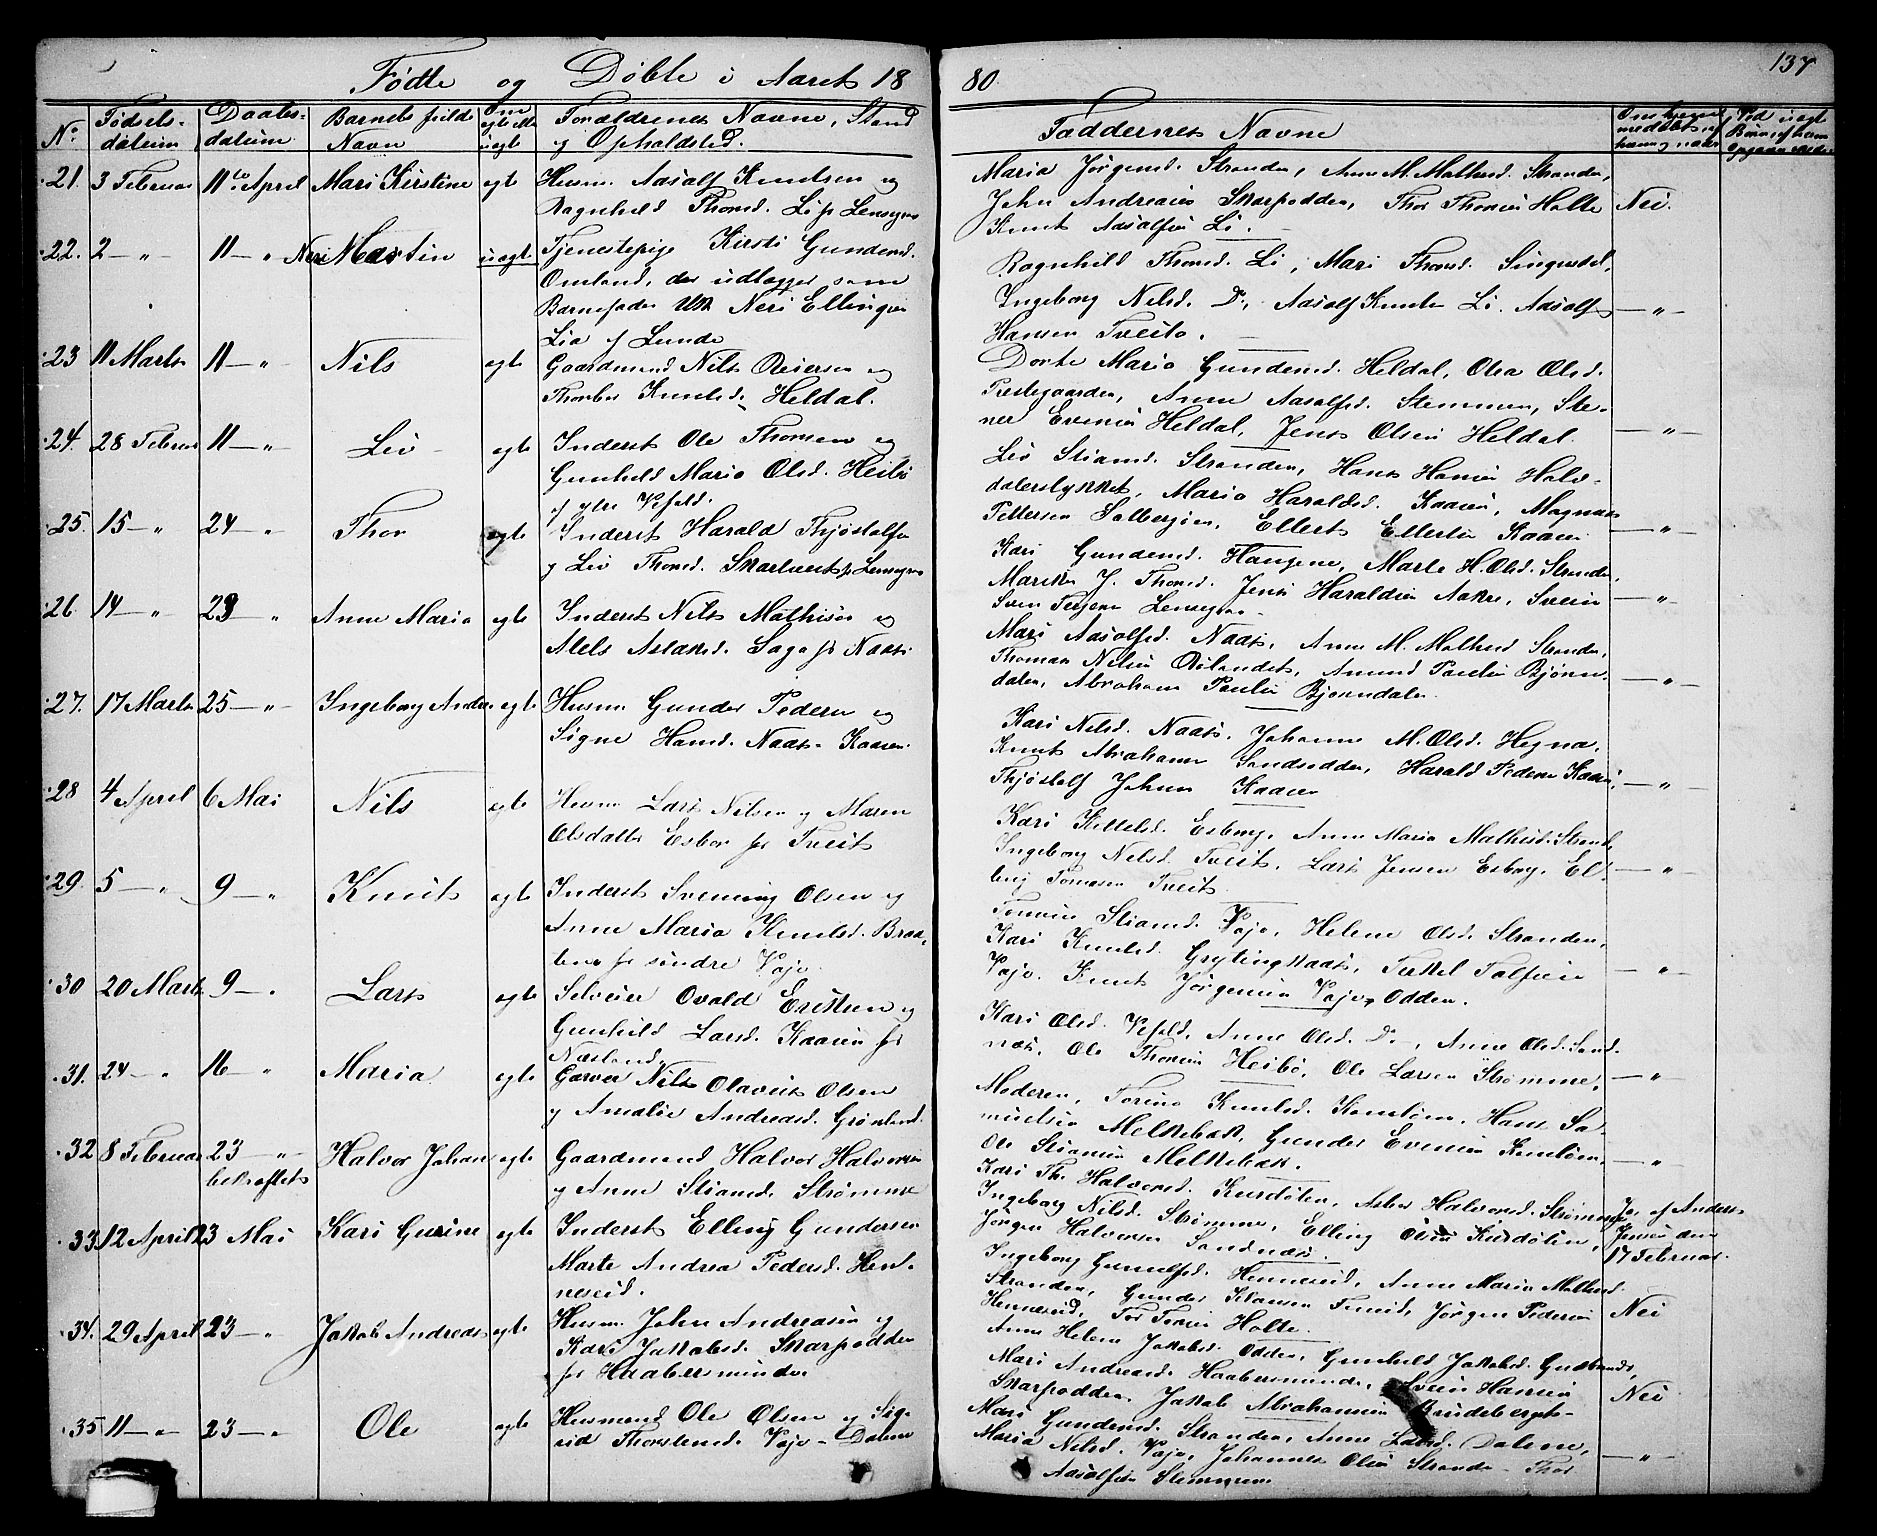 Fødte og Døbte i Aaret 1880.
137
No
Fødsels-
datum
Daabs-
datum
Barnets fulde
Navn
Om
egte eller
uegte
Forældrenes Navne, Stand
og Opholdsted.
Faddernes Navne
21. 3 Februar 11te April Mari Kirstine egte Husm. Aasolf Knudsen og
Ragnhild Thorsd. Li
Maria Jørgensd. Stranden, Anne M. Mathisd. Stranden,
John Andreasen Skarpodden, Thor Thorsen Holte Nei.
Knut Aasolfsen Li.
22. 2 — " — 11 — " Neri Martin uegte Tjenestepige Kirsti Gundersd.
Omland, der udlægger som
Barnefader Neri Ellingsen
Lia af Lunde
Ragnhild Thorsd. Li, Mari Thorsd.
Ingeborg Nilsd. Do, Aasolf Knudsen Li, Aasolf — " —
Hansen Tveito.
23 11 Marts 11 — " Nils egte Gaardmand Nils Reiersen og
Knudsd. Heldal.
Dorte Maria Gundersd. Heldal, Olea Olsd.
Prestegaarden, Anne Aasolfsd. Stemmen, Ste-
ner Evensen Heldal, Jens Olsen Heldal. — " —
24. 28 Februar 11 — " — Liv egte Inderst Ole Thomsen og
Gunhild Maria Olsd. Heibø
af ytre Vefald.
Liv Stiansd. Stranden, Hans Hansen Halv-
dalerstykket, Maria Haraldsd. Kaasen, Magnus
Pettersen Solbergøen, Ellert Ellertsen Kaasen — " —
25. 15 — " 24 — " Thor egte Inderst Harald Thjøstolfsen
og Liv Thorsd.
Kari Gundersd. Haugene, Marte H. Olsd. Stranden,
J. Thorsd. Jens Haraldsen Aakre, Svein — " —
26 14 — " 23 — " Anne Maria egte Inderst Nils Mathisen og
Alets Aslaksd. Naas
Mari Aasolfsd. Naas, Anne M. Mathisd. Stranden,
Thomas Nilsen Rølandet, Amund Paulsen Bjørn-
dalen, Abraham Paulsen Bjørndalen. — " —
27. 17 Marts 25 — " — Ingeborg Andrea egte Husm. Gunder Pedersen og
Signe Hansd. Naas-Kaasen.
Kari Nilsd. Naas, Johanne M. Olsd. Hegna,
Knut Abrahamsen Sandodden, Harald Pedersen Kaasen,
Thjøstolf Johnsen Kaasen — " —
28 4 April 6 Mai Nils egte Husm. Lars Nilsen og Maren
Olsdatter Esbor for Tveit
Kari Kittelsd. Esborg, Anne Maria Mathisd. Strand,
Ingeborg Nilsd. Tveit, Lars Jensen Esborg, El-
ling Tomasen Tveit. — " —
29. 5 — " 9 — " Knut egte Inderst Svennung Olsen og
Anne Maria Knudsd. Braa-
tene for søndre Vajo.
Stiansd. Vajo, Helene Olsd. Stranden,
Kari Knudsd. Terkel
Vajo. Knut Jørgensen Vajo-Odden. — " —
30 20 Marts 9 — " Lars egte Selveier Ovald Eriksen og
Gunhild Larsd. Kaasen for
Næsland.
Kari Olsd. Vefald, Anne Olsd. Do —, Anne Olsd. Sand-
næs, Ole Thomsen Heibø, Ole Larsen Strømme, — " —
31. 24 — " 16 — " Maria egte Garver Nils Olavus Olsen
og Amalie Andreasd. Grønland.
Moderen, Torine Knudsd. Hans Sa-
muelsen Melkebæk, Gunder Evensen
Ole Stiansen Melkebæk. — " —
32 8 Februar 23 — " — Halvor Johan egte Gaardmand Halvor Halvorsen
bekræftet og Anne Stiansd. Strømme
Kari Th. Halvorsd. Kursdølen, Asber Halvorsd. Strømme Ja, af Anders
Ingeborg Nilsd. Strømme, Elling Olsen Kursdølen, Jensen den
Jørgen Halvorsen Sandnæs. 17 Februar.
33 12 April 23 Mai Kari Gurine egte Inderst Elling Gundersen
Marte Andrea Pedersd. Hen-
neseid.
Ingeborg Henneseid, Anne Maria Mathisd.
Stranden, Gunder Klausen Jørgen Pedersen Nei
Henneseid, Tor Holte.
34. 29 April 23 — " Jakob Andreas egte Husm. John Andreasen og
Kari Jakobsd. Skarpodden
for Haabersmunden
Anne Helene Jakobsd. Odden, Gunhild Jakobsd.
Mari Andreasd. Haabersmunden, Svein Hansen Nei
Skarpodden, Jakob Abrahamsen
35 11 — " — 23 — " Ole egte Husmand Ole Olsen og Sig-
rid Thorstensd. Vajo-Dalene
Mari Gundersd. Stranden, Anne Larsd. Dalene,
Maria Nilsd. Vajo, Johannes Olsen Stranden Thor — " —
Aasolfsen Stemmen